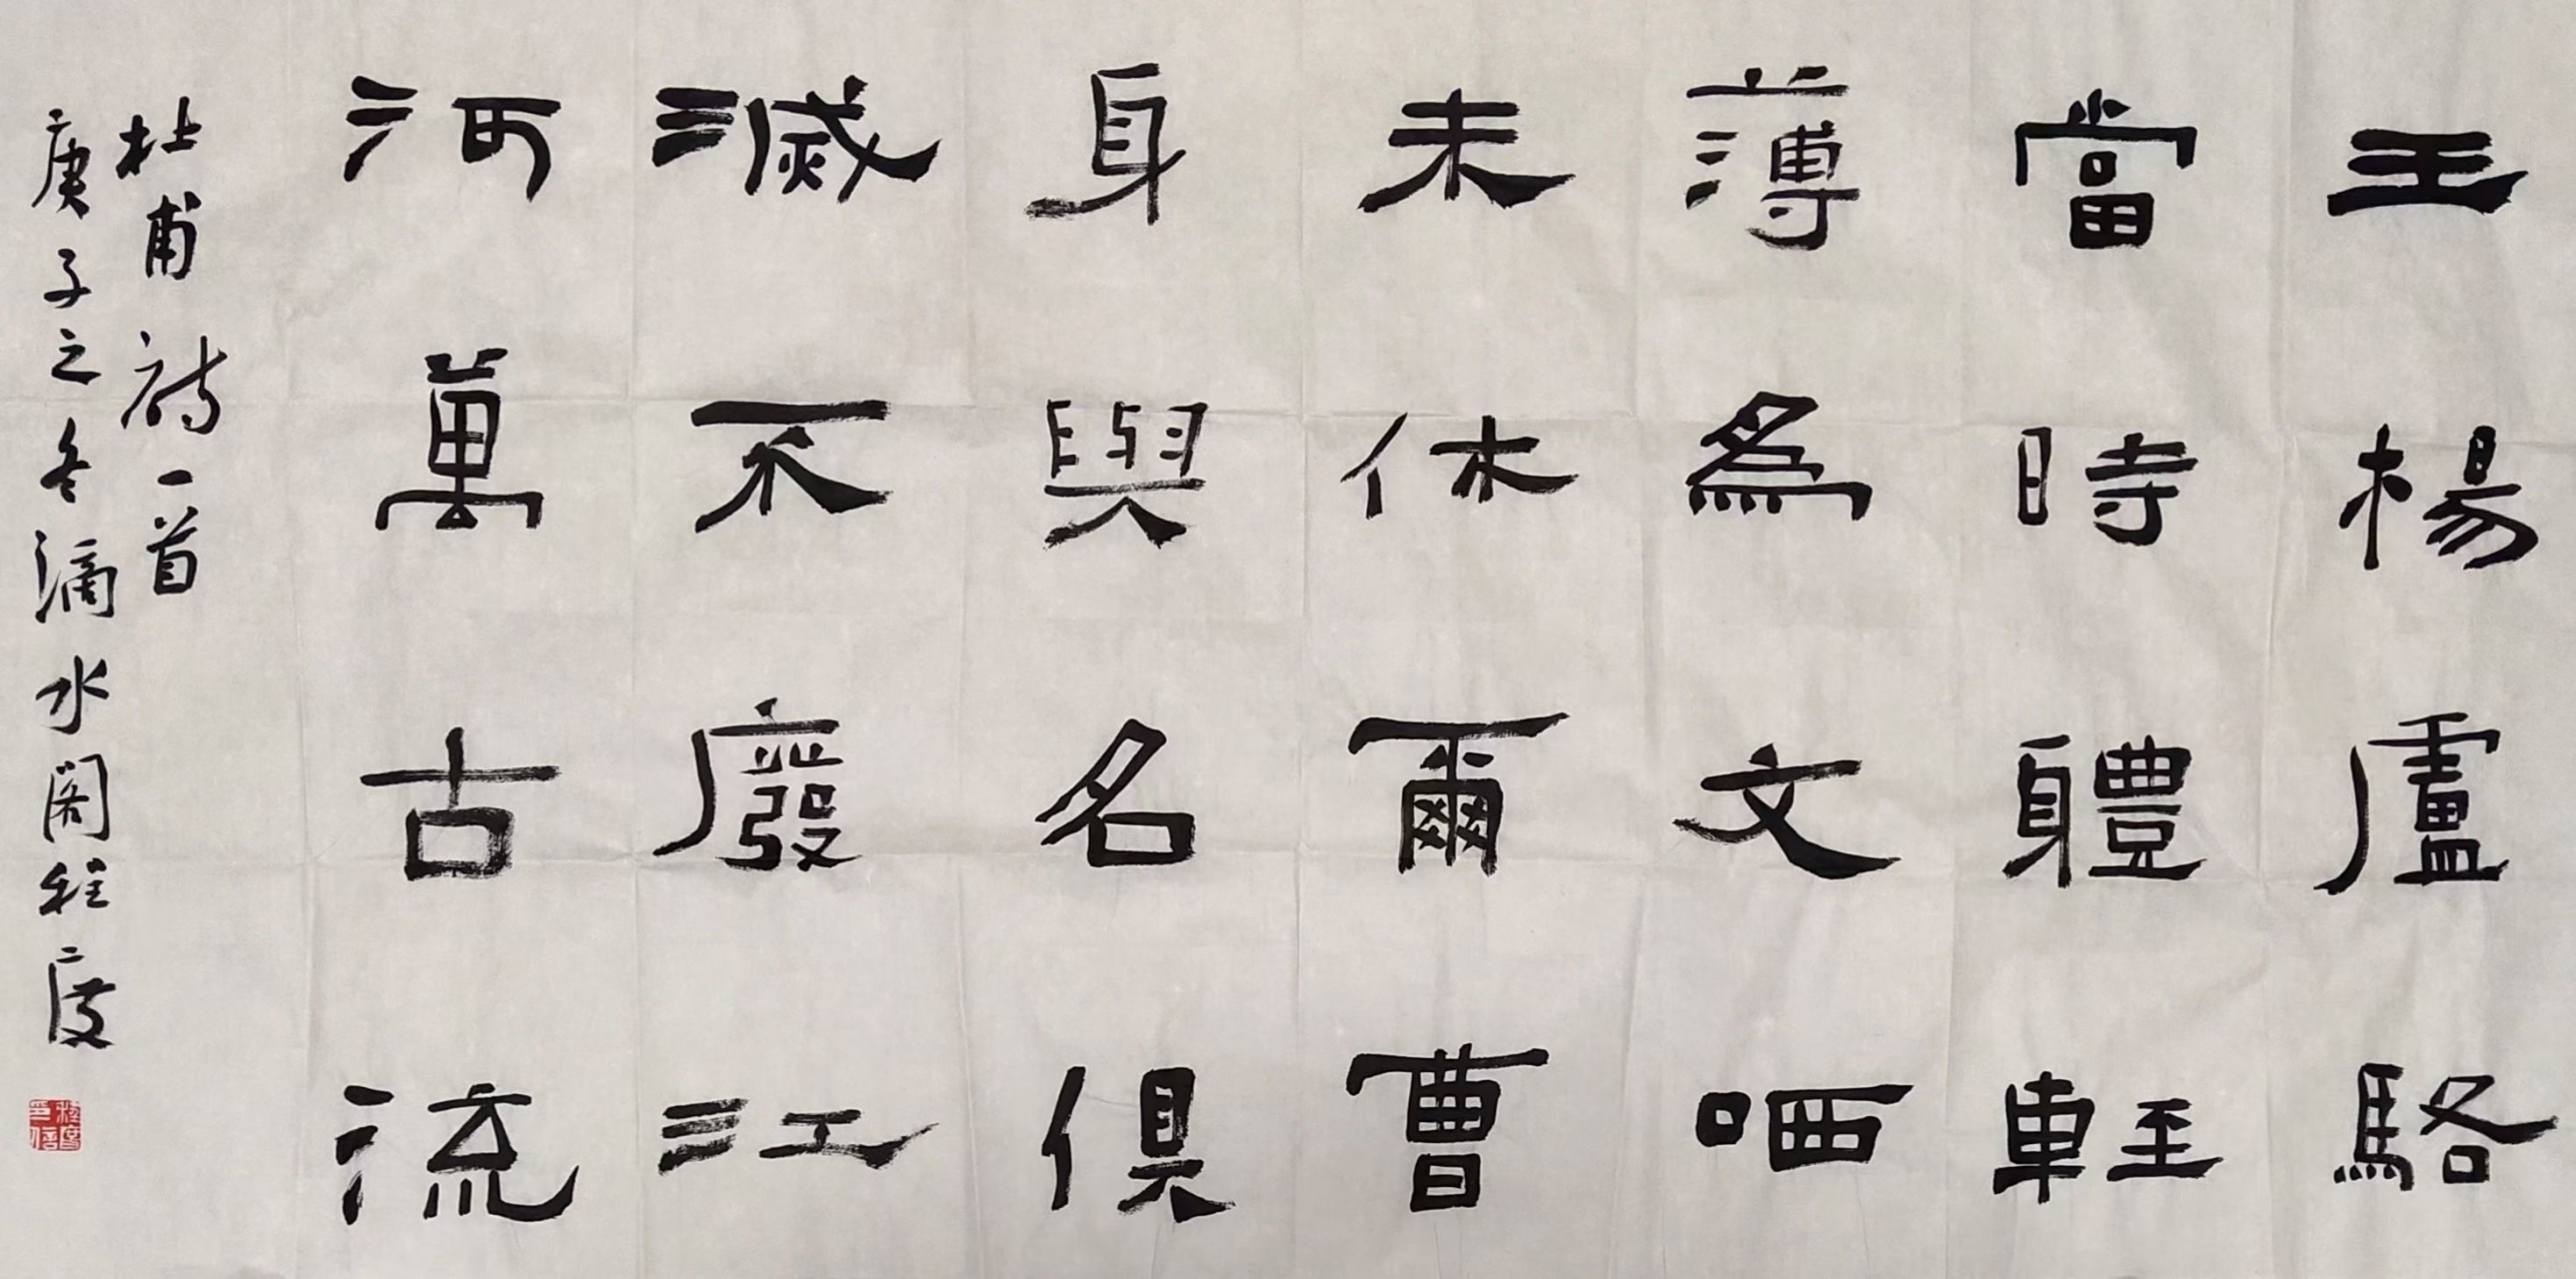 王楊盧駱
當時軆輕
薄爲文哂
未休爾曹
身與名俱
滅不廢江
河萬古流
杜甫詩一首
庚子之冬滴水閣程度
程度印信